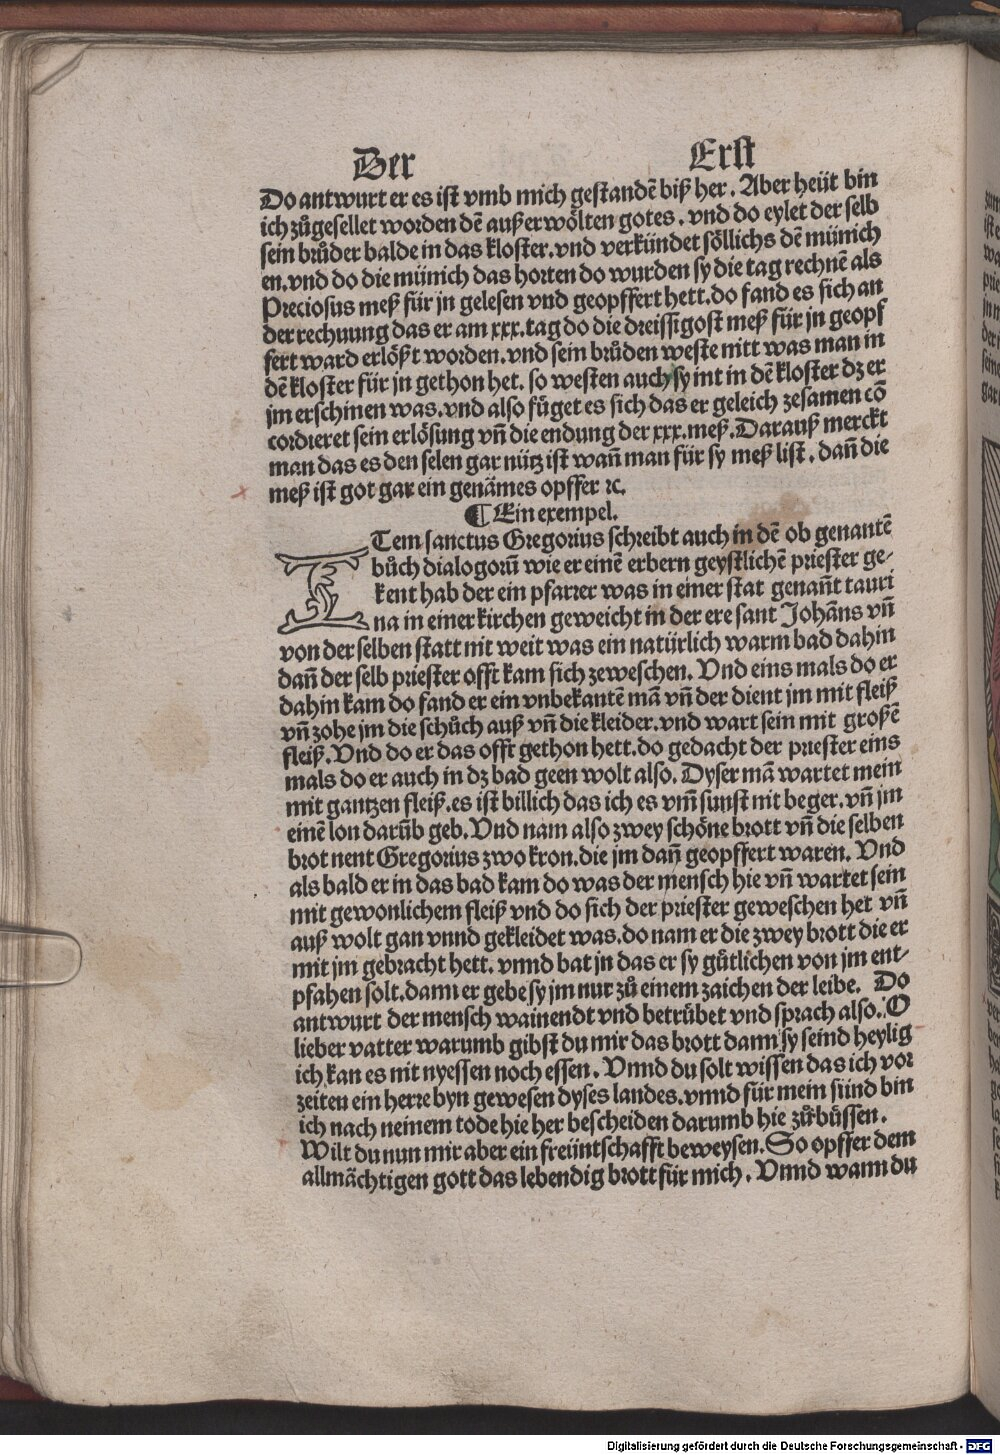 Der Erst
Do antwurt er es ist vmb mich gestandē biß her. Aber heüt bin
ich zůgesellet worden dē außerwölten gotes. vnd do eylet der selb
sein brůder balde in das kloster. vnd verkündet söllichs dē münich
en. vnd do die münich das horten do wurden sy die tag rechnē als
Preciosus meß für jn gelesen vnd geopffert hett. do fand es sich an
der rechnung das er am xxx. tag do die dreissigost meß für jn geopf
fert ward erlößt worden. vnd sein brůden weste nitt was man in
dē kloster für jn gethon het. so westen auch sy int in dē kloster dz er
jm erschinen was. vnd also füget es sich das er geleich zesamen cō
cordieret sein erlösung vn̄ die endung der xxx. meß. Darauß merckt
man das es den selen gar nütz ist wan̄ man für sy meß list. dan̄ die
meß ist got gar ein genämes opffer ⁊c.
¶ Ein exempel.
ITem sanctus Gregorius schreibt auch in dē ob genantē
bůch dialogorū wie er einē erbern geystlichē priester ge-
kent hab der ein pfarrer was in einer stat genan̄t tauri
na in einer kirchen geweicht in der ere sant Johāns vn̄
von der selben statt nit weit was ein natürlich warm bad dahin
dan̄ der selb priester offt kam sich zeweschen. Vnd eins mals do er
dahin kam do fand er ein vnbekantē mā vn̄ der dient jm mit fleiß
vn̄ zohe jm die schůch auß vn̄ die kleider. vnd wart sein mit großē
fleiß. Vnd do er das offt gethon hett. do gedacht der priester eins
mals do er auch in dz bad geen wolt also. Dyser mā wartet mein
mit gantzen fleiß. es ist billich das ich es vm̄ sunst nit beger. vn̄ jm
einē lon darūb geb. Vnd nam also zwey schöne brott vn̄ die selben
brot nent Gregorius zwo kron. die jm dan̄ geopffert waren. Vnd
als bald er in das bad kam do was der mensch hie vn̄ wartet sein
mit gewonlichem fleiß vnd do sich der priester geweschen het vn̄
auß wolt gan vnnd gekleidet was. do nam er die zwey brott die er
mit jm gebracht hett. vnnd bat jn das er sy gůtlichen von jm ent-
pfahen solt. dann er gebe sy jm nur zů einem zaichen der leibe. Do
antwurt der mensch wainendt vnd betrübet vnd sprach also. O
lieber vatter warumb gibst du mir das brott dann sy seind heylig
ich kan es nit nyessen noch essen. Vnnd du solt wissen das ich vor
zeiten ein herre byn gewesen dyses landes. vnnd für mein sünd bin
ich nach neinem tode hie her bescheiden darumb hie zůbüssen.
Wilt du nun mir aber ein freüntschafft beweysen. So opffer dem
allmächtigen gott das lebendig brott für mich. Vnnd wann du
Digitalisierung gefördert durch die Deutsche Forschungsgemeinschaft - DFG